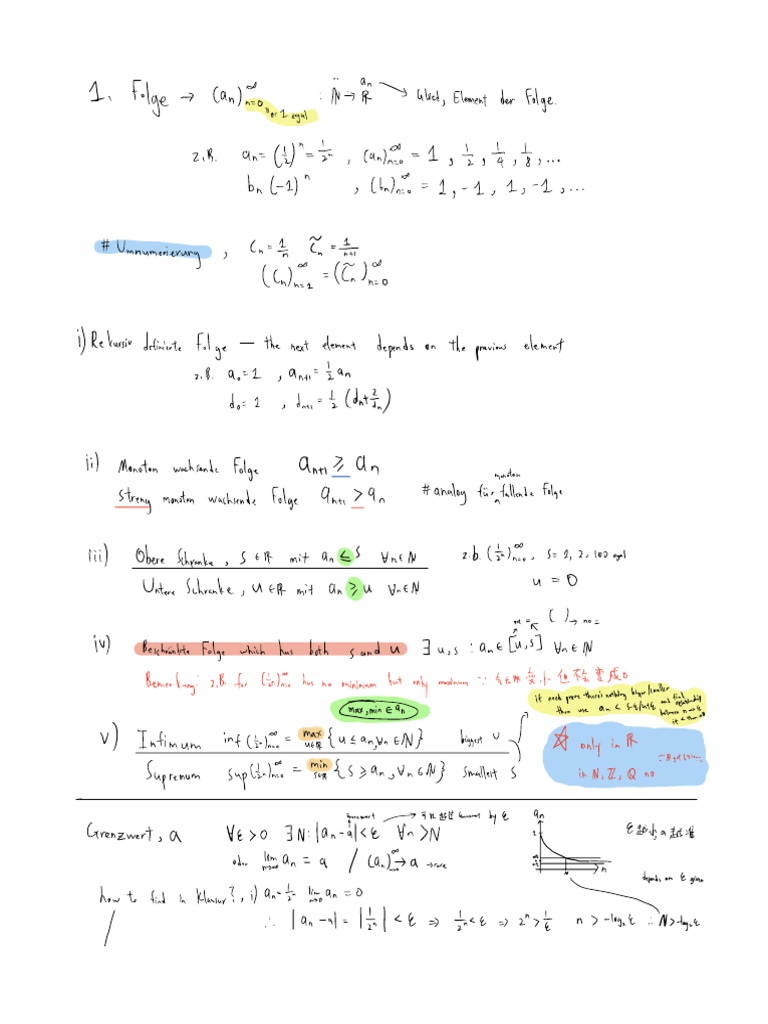 1. Folge → (aₙ)ₙ₌₀^∞ : ℕ → ℝ aₙ → Glied, Element der Folge.
or 1 egal
z.B. aₙ = (1/2)ⁿ = 1/2ⁿ , (aₙ)ₙ₌₀^∞ = 1, 1/2, 1/4, 1/8, ...
bₙ (-1)ⁿ , (bₙ)ₙ₌₀^∞ = 1, -1, 1, -1, ...
# Umnumerierung , Cₙ = 1/n C̃ₙ = 1/(n+1)
(Cₙ)ₙ₌₁^∞ = (C̃ₙ)ₙ₌₀^∞
i) Rekursiv definierte Folge — the next element depends on the previous element
z.B. a₀ = 1 , aₙ₊₁ = 1/2 aₙ
d₀ = 1 , dₙ₊₁ = 1/2 (dₙ + 2/dₙ)
ii) Monoton wachsende Folge aₙ₊₁ ≥ aₙ
streng monoton wachsende Folge aₙ₊₁ > aₙ # analog für monoton fallende Folge
iii) Obere Schranke, s ∈ ℝ mit aₙ ≤ s ∀n∈ℕ z.b. (1/2ⁿ)ₙ₌₀^∞, s = 1, 2, 100 egal
Untere Schranke, u ∈ ℝ mit aₙ ≥ u ∀n∈ℕ u = 0
iv) Beschränkte Folge which has both s and u ∃ u,s : aₙ ∈ [u,s] ∀n∈ℕ
( ) → no =
Bemerkung: z.B. for (1/2ⁿ)ₙ₌₀^∞ has no minimum but only maximum ∵ 会变小 但不会变成0
max, min ∈ aₙ
v) Infimum inf (1/2ⁿ)ₙ₌₀^∞ = max u∈ℝ {u ≤ aₙ, ∀n∈ℕ} biggest u
Supremum sup (1/2ⁿ)ₙ₌₀^∞ = min s∈ℝ {s ≥ aₙ, ∀n∈ℕ} smallest s
☆ only in ℝ
in ℕ, ℤ, ℚ no
Grenzwert, a ∀ε>0 ∃N: |aₙ - a| < ε ∀n > N
by ε
oder lim n→∞ aₙ = a / (aₙ)^∞ → a
aₙ
1
n
ε越小,a越准
depends on ε given
how to find in Klausur?, i) aₙ = 1/2ⁿ lim n→∞ aₙ = 0
∴ |aₙ - n| = |1/2ⁿ| < ε ⇒ 1/2ⁿ < ε ⇒ 2ⁿ > 1/ε n > -log₂ε ∴ N > -log₂ε